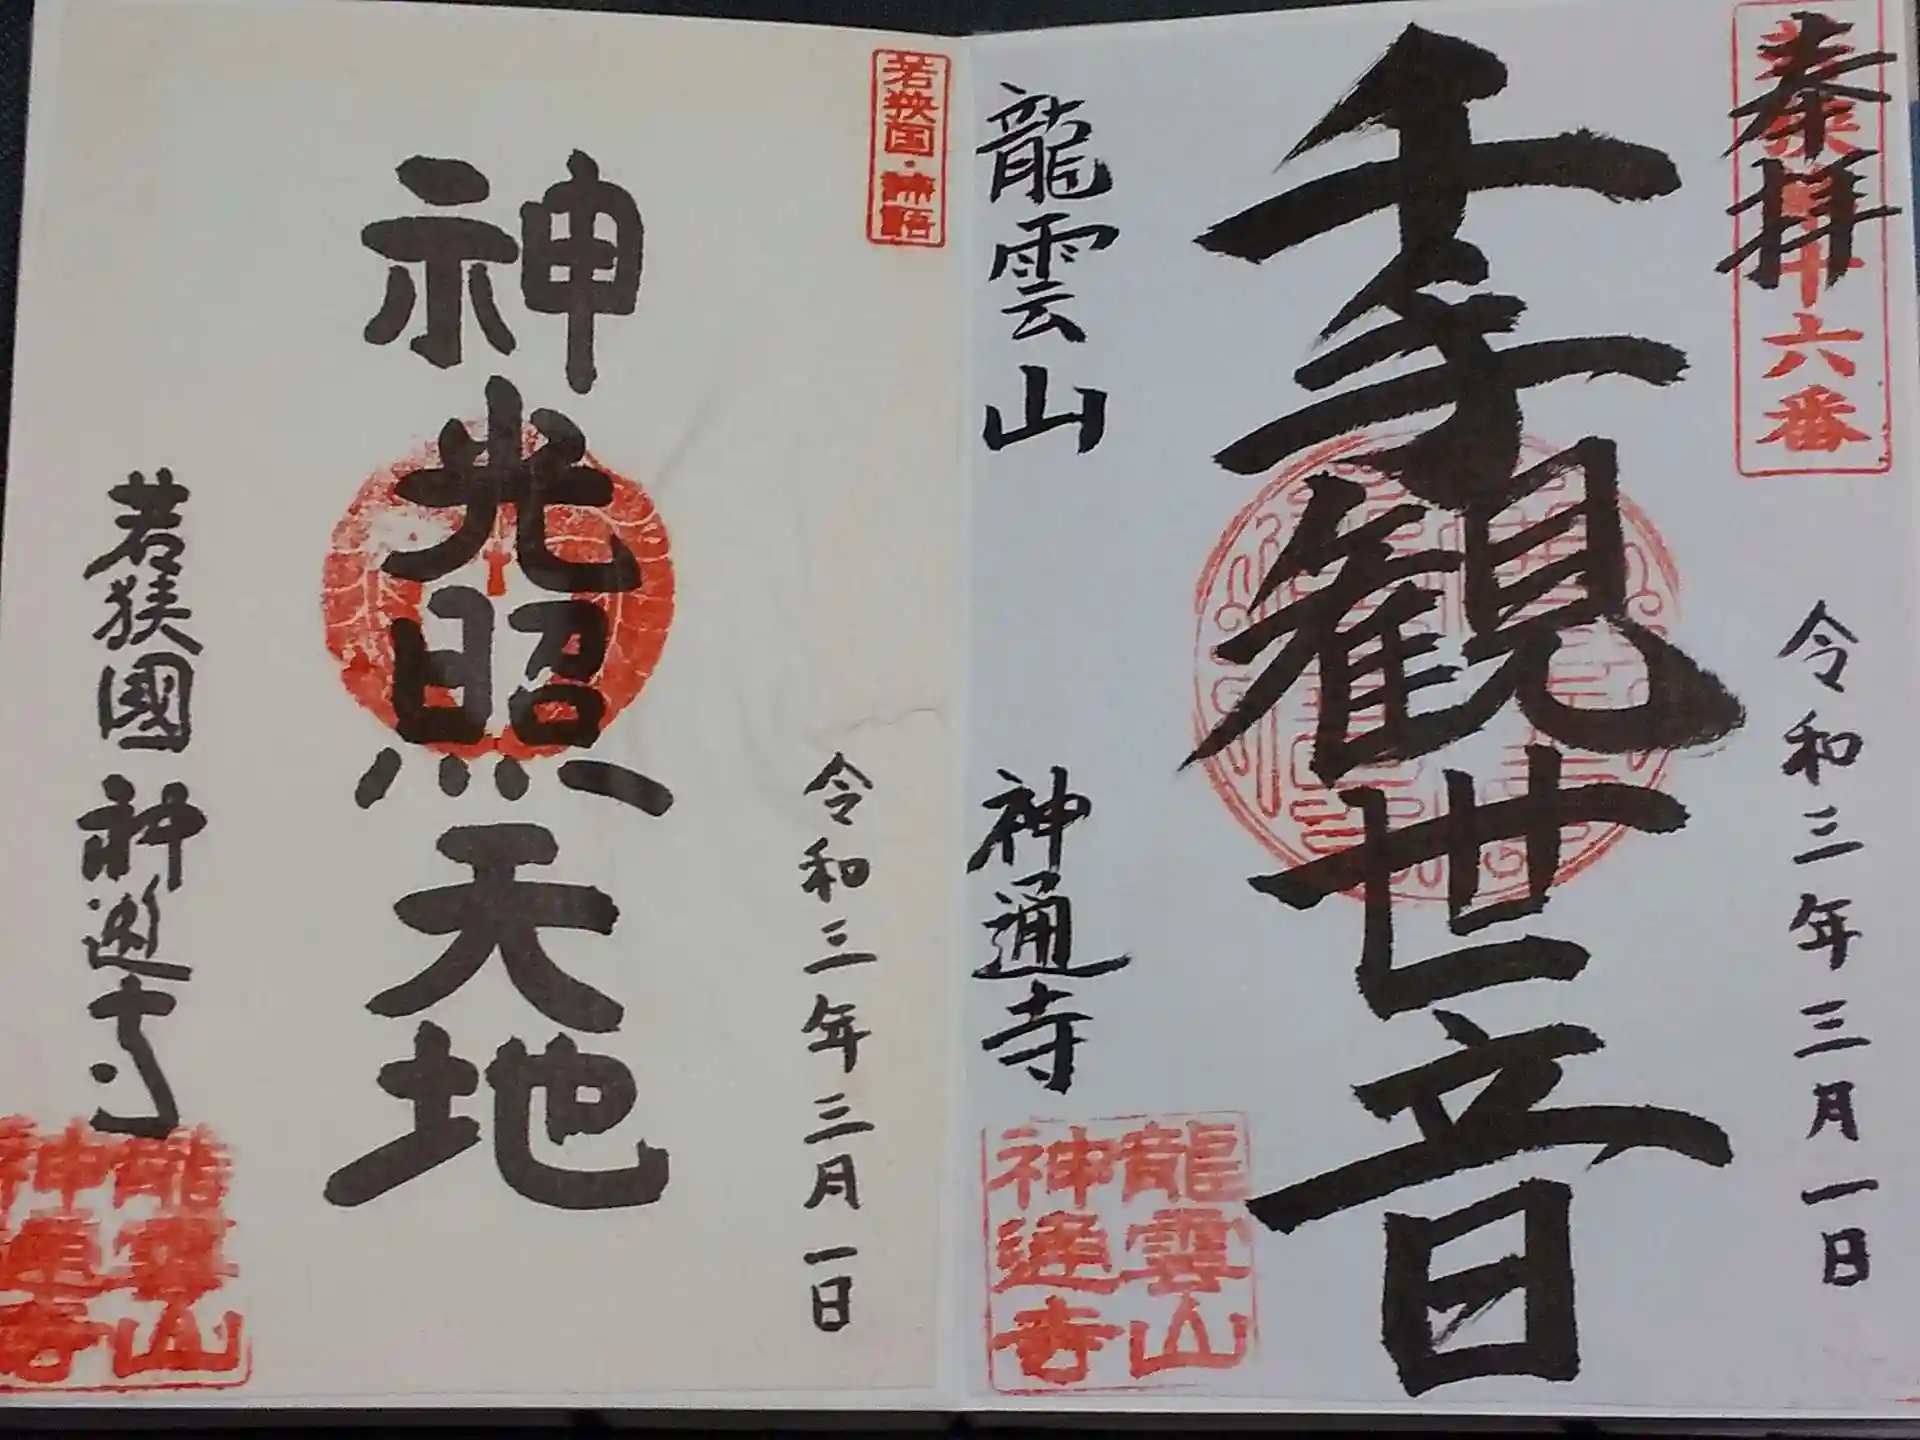 奉拝
十六番
千手観世音
令和三年三月一日
龍雲山
神通寺
龍雲山
神通寺
若狭国・禅語
神光照天地
令和三年三月一日
若狭國 神通寺
龍雲山
神通寺